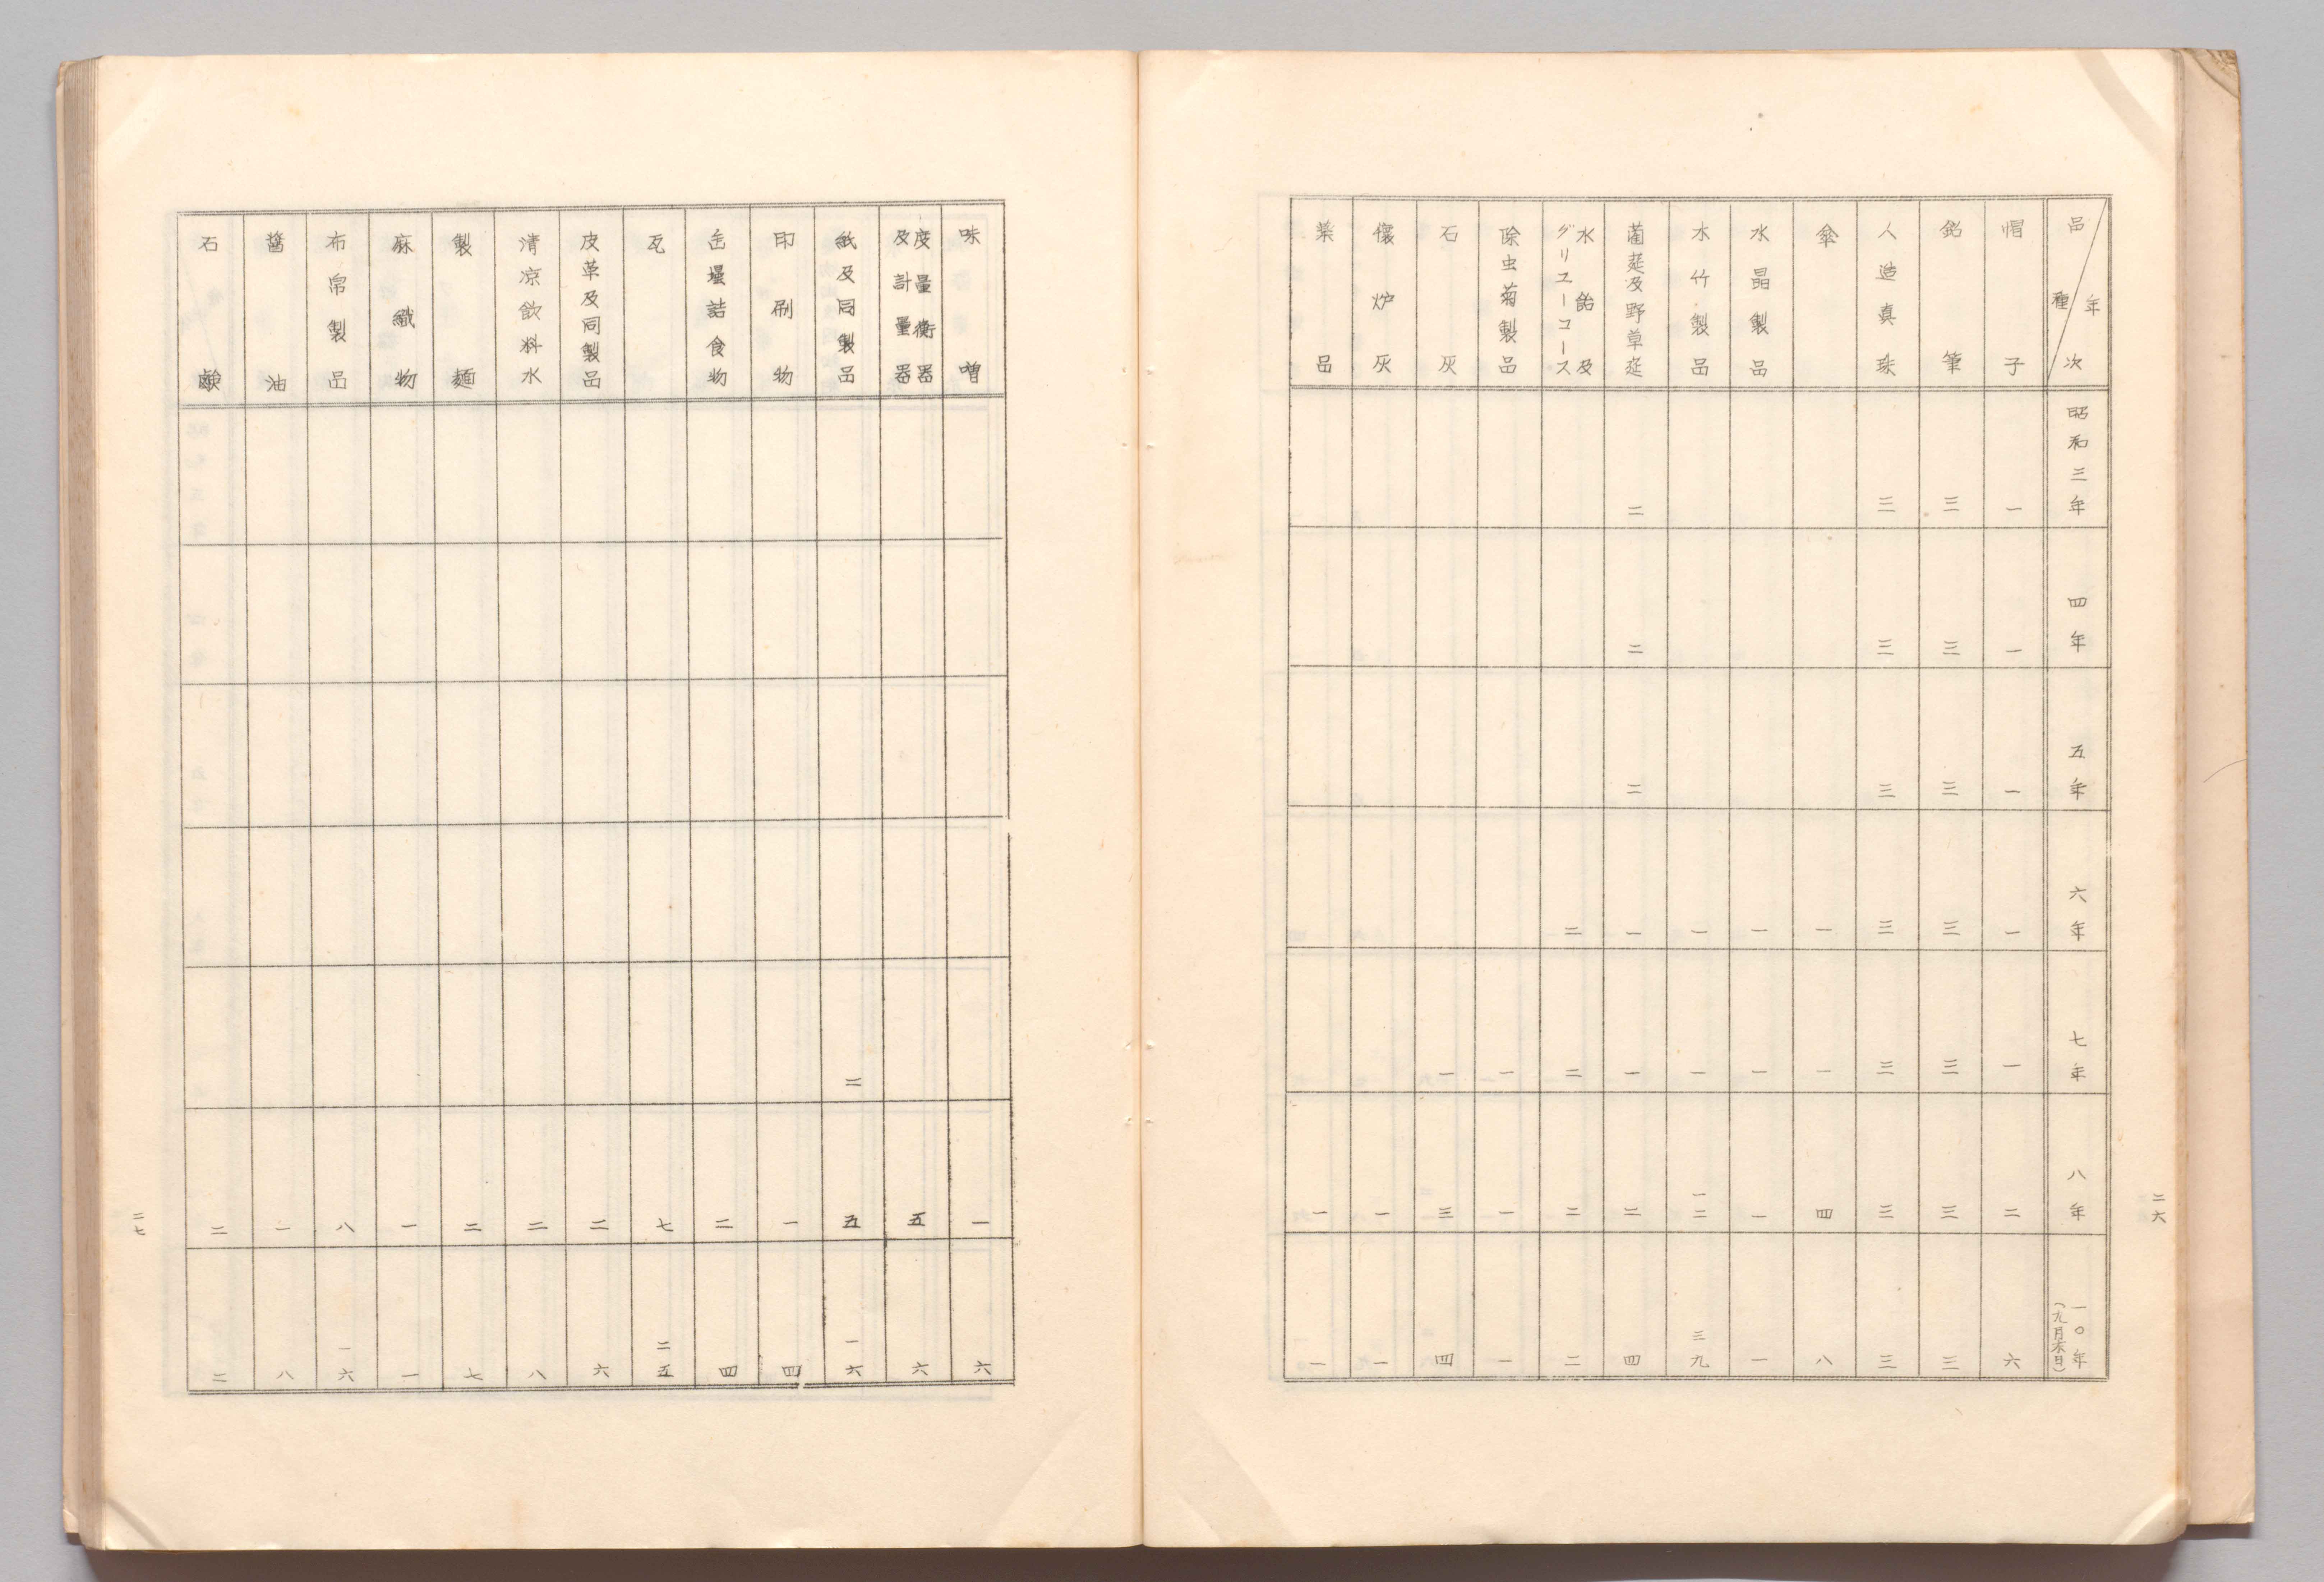 二六
品種 年次 昭和三年 四年 五年 六年 七年 八年 一〇年(九月末日)
帽子 一 一 一 一 一 二 六
鉛筆 三 三 三 三 三 三 三
人造真珠 三 三 三 三 三 三 三
傘 一 一 四 八
水晶製品 一 一 一 一
木竹製品 一 一 一二 三九
藺莚及野草莚 二 二 二 一 一 二 四
水飴及
グリユーコース 二 二 二 二
除虫菊製品 一 一 一
石灰 一 三 四
懐炉灰 一 一
薬品 一 一
味噌 一 六
度量衡器
及計量器 五 六
紙及同製品 二 五 一六
印刷物 一 四
缶壜詰食物 二 四
瓦 七 二五
皮革及同製品 二 六
清凉飲料水 二 八
製麺 二 七
麻織物 一 一
布帛製品 八 一六
醤油 一 八
石鹸 二 二
二七